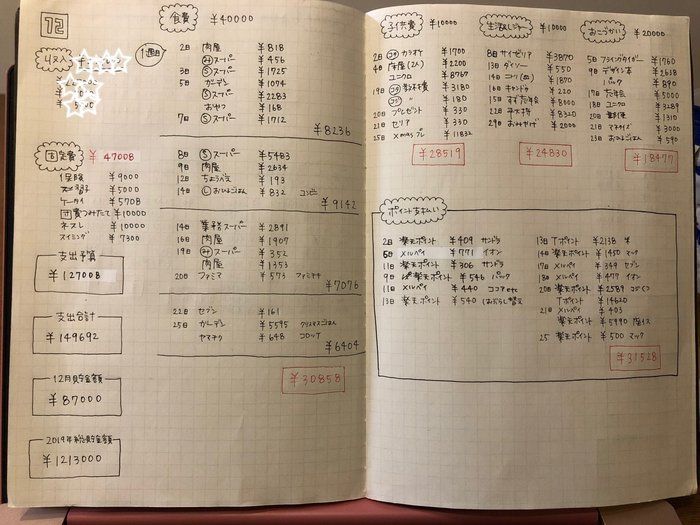 12
収入
固定費 ¥47008
保険 ¥9000
¥5000
ケータイ ¥5708
つみたて ¥10000
ネスレ ¥10000
スイミング ¥7300
支出予算
¥127008
支出合計
¥149692
12月貯金金額
¥87000
2019年総貯金金額
¥1213000
食費 ¥40000
1週目
2日 肉屋 ¥818
スーパー ¥456
3日 Ⓢスーパー ¥1725
5日 ガーデン ¥1074
Ⓢスーパー ¥2283
おやつ ¥168
7日 Ⓢスーパー ¥1712
¥8236
8日 Ⓢスーパー ¥5483
9日 肉屋 ¥2634
12日 ¥193
14日 Ⓛおひるごはん ¥832 コンビニ
¥9142
14日 業務スーパー ¥2891
16日 肉屋 ¥1907
19日 スーパー ¥352
肉屋 ¥1353
20日 ファミマ ¥573 ファミチキ
¥7076
22日 セブン ¥161
25日 ガーデン ¥5595 クリスマスごはん
ヤマチク ¥648 コロッケ
¥6404
¥30858
子供費 ¥10000
2日 カラオケ ¥1700
4日 床屋(2人) ¥2200
ユニクロ ¥8767
19日 ¥3180
¥180
20日 プレゼント ¥330
21日 セリア ¥330
25日 Xmasプレ ¥11832
¥28519
生活&レジャー ¥10000
8日 サイゼリヤ ¥3870
13日 ダイソー ¥550
14日 ニトリ ¥1870
16日 キャンドゥ ¥220
15日 ¥8000
22日 ¥8320
29日 おみやげ ¥2000
¥24830
おこづかい ¥20000
5日 フライングタイガー ¥1760
9日 デザイン本 ¥2638
パック ¥890
17日 忘年会 ¥5000
18日 ユニクロ ¥3289
20日 ¥1000
21日 ¥3000
13日 おひるごはん ¥590
¥18477
ポイント支払い
2日 楽天ポイント ¥409 サンドラ
5日 メルペイ ¥771 イオン
11日 楽天ポイント ¥306 サンドラ
9日 楽天ポイント ¥546 パック
11日 メルペイ ¥440 ココアetc
13日 楽天ポイント ¥540 はぶらし替え
13日 Tポイント ¥2138
14日 楽天ポイント ¥1450 マック
17日 メルペイ ¥349 セブン
18日 メルペイ ¥477 イオン
20日 楽天ポイント ¥2589
Tポイント ¥14620
21日 メルペイ ¥403
楽天ポイント ¥5990
25 楽天ポイント ¥500 マック
¥31528